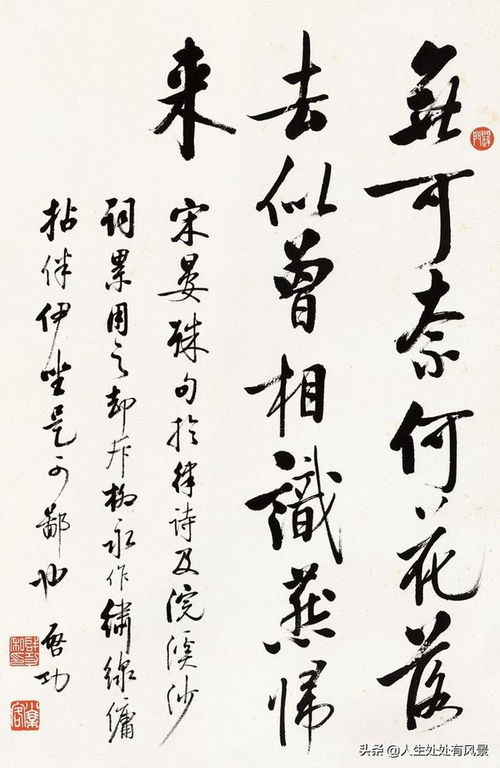 無可奈何花落
去似曾相識燕歸
来
宋晏殊句於律詩及浣溪沙
詞累用之却斥柳永作繡線慵
拈伴伊坐是可鄙也 啓功
头条 @人生处处有风景